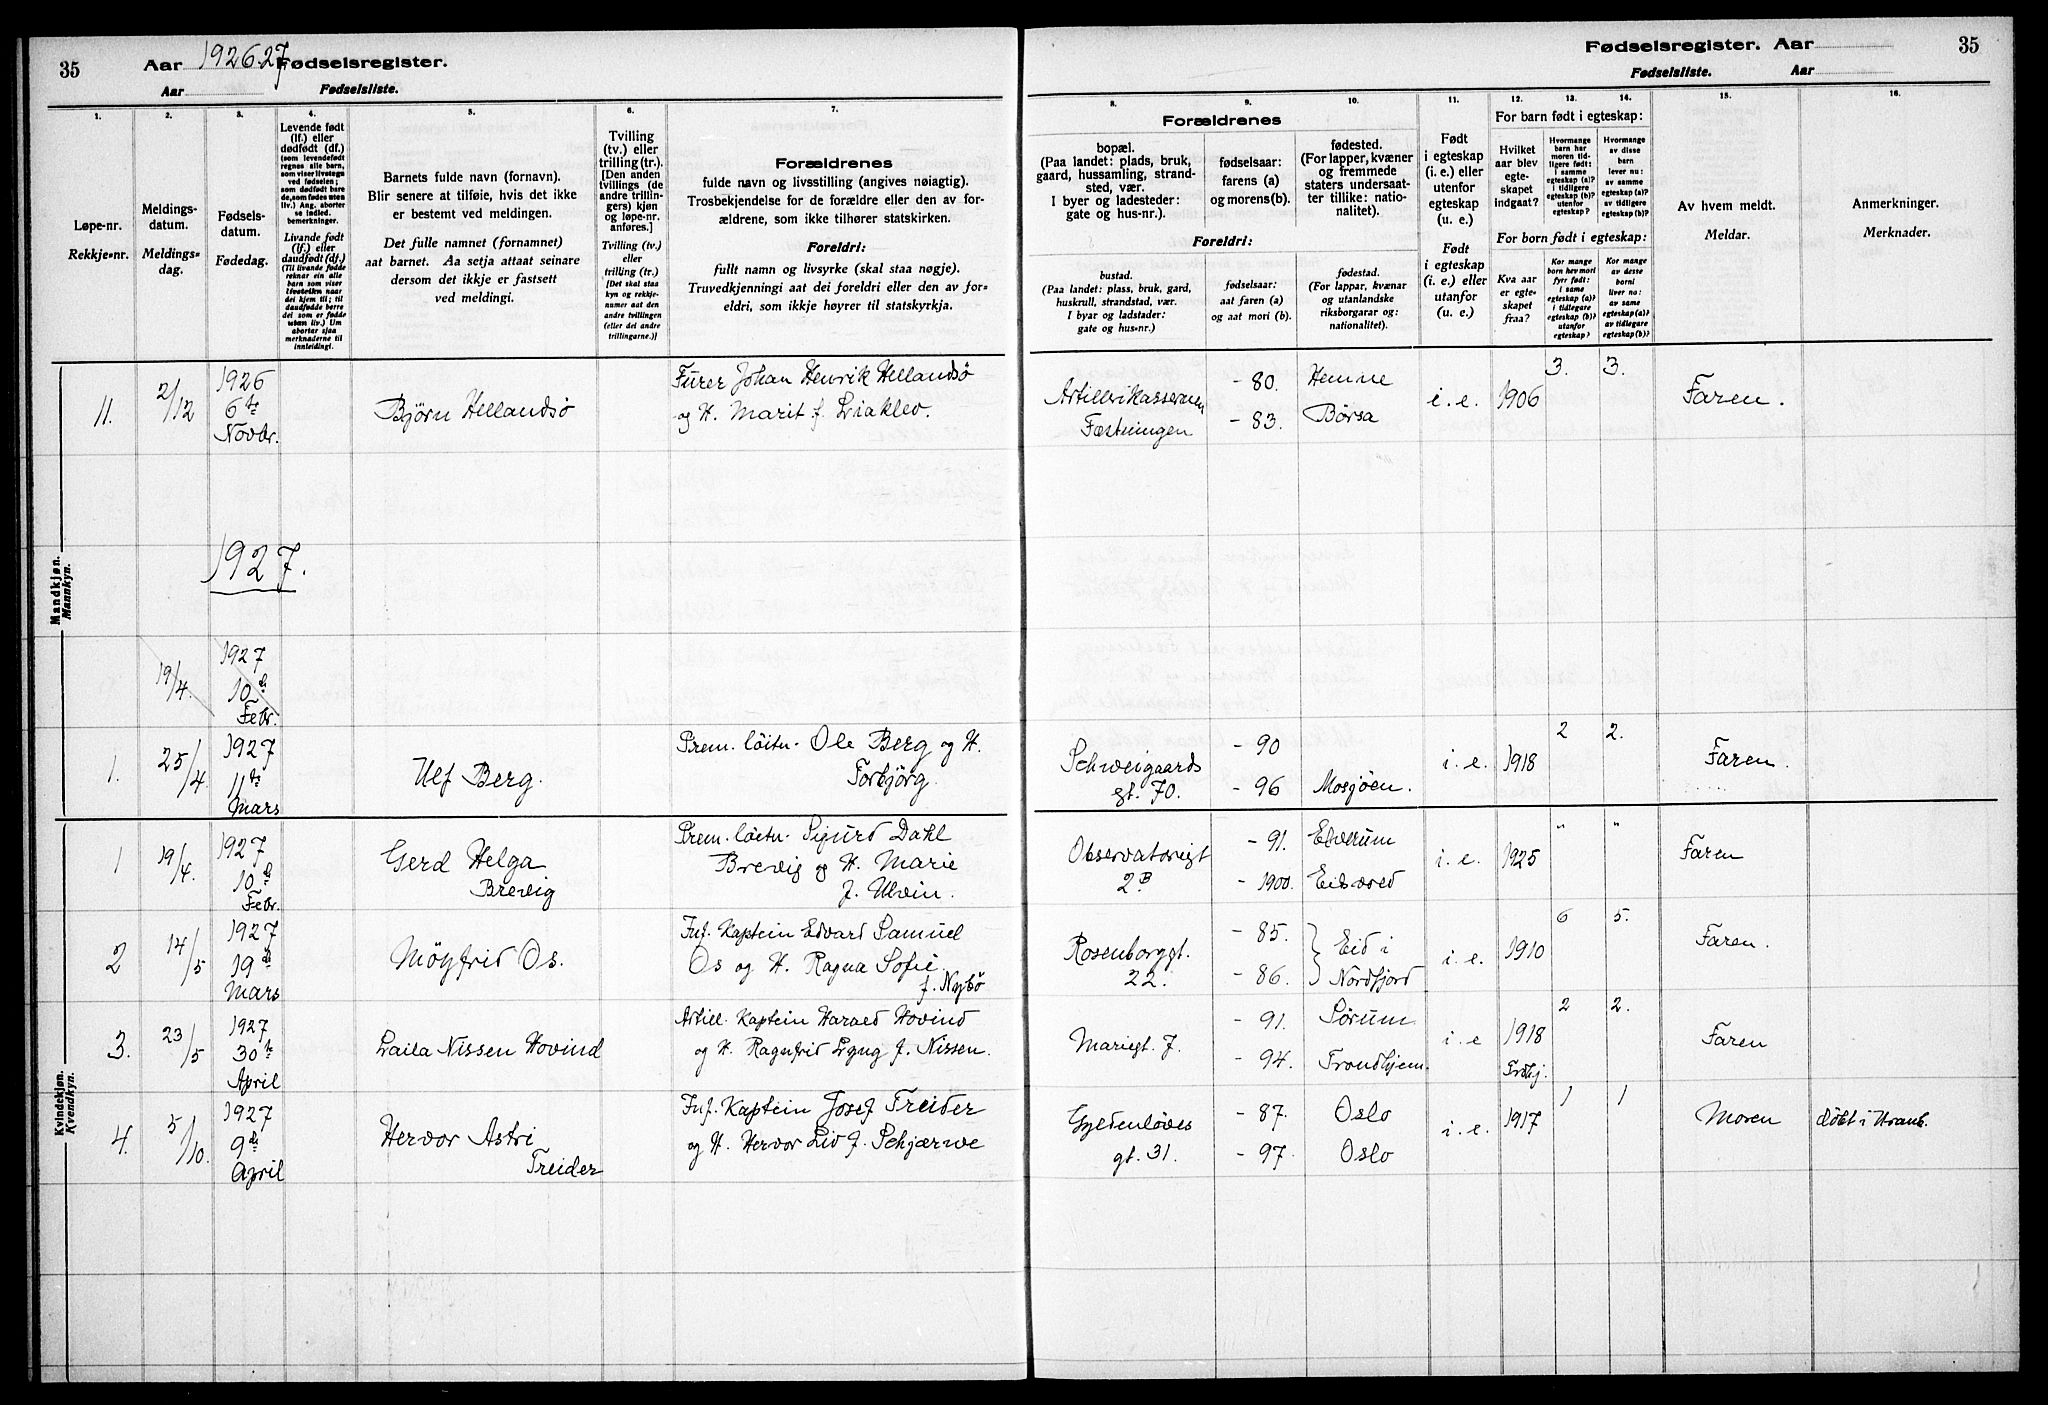 35
Aar 1926-27 Fødselsregister.
Aar Fødselsliste.
1.
2.
3.
4.
5.
6.
7.
Løpe-nr.
Rekkje-nr.
Meldings-
datum.
Meldings-
dag.
Fødsels-
datum.
Fødedag.
Levende født
(lf.) eller
dødfødt (df.)
(som levendefødt
regnes alle barn,
som viser livstegn
ved fødselen;
som dødfødt bare
de, som fødes uten
liv.) Ang. aborter
se indled.
bemerkninger.
Livande født
(lf.) eller
daudfødt (df.)
(Til livande fødde
reknar ein alle
born som viser
livsteikn naar
dei kjem til; til
daudfødde berre
dei som er fødde
utan liv.) Um
abortar sjaa
merknaderne til
innleidingi.
Barnets fulde navn (fornavn).
Blir senere at tilføie, hvis det ikke
er bestemt ved meldingen.
Det fulle namnet (fornamnet)
aat barnet. Aa setja attaat seinare
dersom det ikkje er fastsett
ved meldingi.
Tvilling
(tv.) eller
trilling (tr.).
[Den anden
tvillings (de
andre trillin-
gers) kjøn
og løpe-nr.
anføres.]
Tvilling (tv.)
eller
trilling (tr.)
[Det skal staa
kyn og rekkje-
numer aat den
andre tvillingen
(eller dei andre
trillingarne.)]
Forældrenes
fulde navn og livsstilling (angives nøiagtig).
Trosbekjendelse for de forældre eller den av for-
ældrene, som ikke tilhører statskirken.
Foreldri:
fullt namn og livsyrke (skal staa nøgje).
Truvedkjenningi aat dei foreldri eller den av for-
eldri, som ikkje høyrer til statskyrkja.
Fødselsregister. Aar 35
Fødselsliste. Aar
8.
9.
10.
11.
12.
13.
14.
15.
16.
Forældrenes
bopæl.
(Paa landet: plads, bruk,
gaard, hussamling, strand-
sted, vær.
I byer og ladesteder:
gate og hus-nr.).
fødselsaar:
farens (a)
og morens (b).
fødested.
(For lapper, kvæner
og fremmede
staters undersaat-
ter tillike: natio-
nalitet).
Foreldri:
bustad.
(Paa landet: plass, bruk, gard,
huskrull, strandstad, vær.
I byar og ladstader:
gate og hus-nr.)
fødselsaar:
aat faren (a)
og aat mori (b).
fødestad.
(For lappar, kvænar
og utanlandske
riksborgarar og:
nationalitet).
Født
i egteskap
(i. e.) eller
utenfor
egteskap
(u. e.)
Født
i egteskap
(i. e.) eller
utanfor
(u. e.)
For barn født i egteskap:
Hvilket
aar blev
egte-
skapet
indgaat?
Hvormange
barn har
moren tid-
ligere født:
i samme
egteskap (a)?
i tidligere
egteskap (b)?
utenfor
egteskap?
Hvormange
av disse
barn
lever nu:
av samme
egteskap (a)?
av tidligere
egteskap (b)?
For born født i egteskap:
Kva aar
er egte-
skapet
fraa?
Kor mange
born hev mori
fyrr født:
i same
egteskap (a)?
i tidlegare
egteskap (b)?
utanfor
egteskap?
Kor mange
av desse
borni
liver no:
av same
egteskap (a)?
av tidlegare
egteskap (b)?
Av hvem meldt.
Meldar.
Anmerkninger.
Merknader.
Mandkjøn.
Mannkyn.
11. 2/12 1926 6te Novbr. Björn Hellandsö
Furer Johan Henrik Hellandsö
og H. Marit f. Liaklev.
Artillerikasernen
Fæstningen
- 80. Hemne
- 83. Börsa
i. e. 1906 3. 3. Faren.
1927.
19/4. 1927 10de Febr.
1. 25/4 1927 11te Mars Ulf Berg.
Prem. löitn. Ole Berg og H.
Torbjörg.
Schweigaards
gt. 70.
- 90
- 96 Mosjöen.
i. e. 1918 2 2. Faren.
Kvindekjøn.
Kvendkyn.
1 19/4. 1927 10de Febr. Gerd Helga
Brevig
Prem. löitn. Sigurd Dahl
Brevig og H. Marie
f. Ulvin.
Observatoriegt
2B
- 91. Elverum
- 1900. Eidsvold
i. e. 1925 " " Faren
2 14/5 1927 19de Mars Möyfrid Os.
Inf. Kaptein Edvard Samuel
Os og H. Ragna Sofie
f. Nybö
Rosenborggt.
22.
- 85.
- 86.
Eid i
Nordfjord
i. e. 1910 6 5. Faren.
3. 23/5 1927 30te April Laila Nissen Hovind
Artill. Kaptein Harald Hovind
og H. Ragnfrid Lyng f. Nissen.
Mariegt. 7.
- 91. Sörum
- 94. Trondhjem.
i. e 1918 Trdhj. 2 2. Faren
4. 5/10. 1927 9de April Hervor Astri
Treider
Inf. Kaptein Josef Treider
og H. Hervor Liv f. Schjærve
Gyldenlöves
gt. 31.
- 87. Oslo
- 97. Oslo
i. e. 1917 1 1 Moren döbt i Uranb.